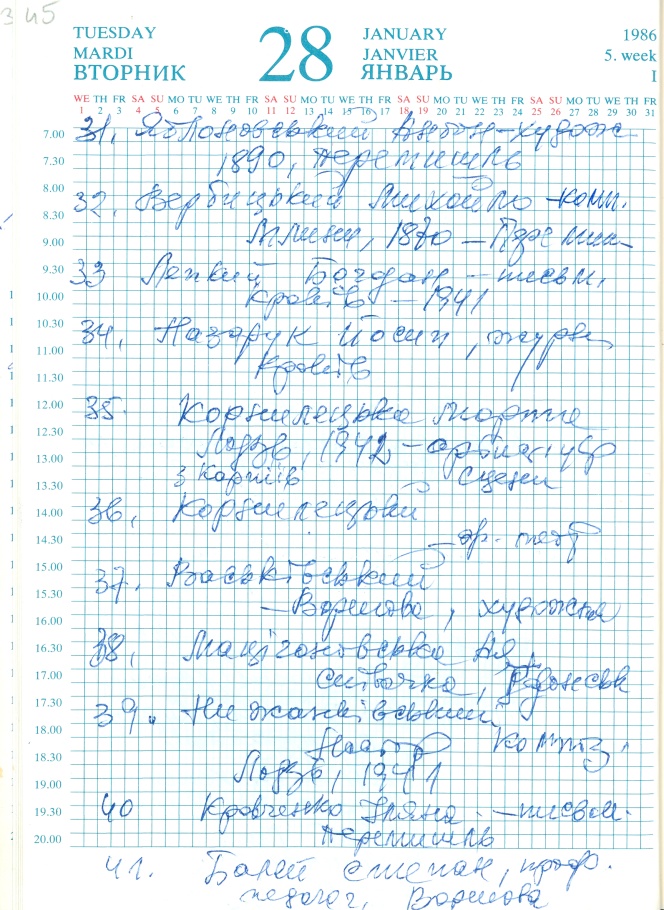 345
TUESDAY
MARDI
ВТОРНИК
28
JANUARY
JANVIER
ЯНВАРЬ
1986
5. week
I
WE TH FR SA SU MO TU WE TH FR SA SU MO TU WE TH FR SA SU MO TU WE TH FR SA SU MO TU WE TH FR
1 2 3 4 5 6 7 8 9 10 11 12 13 14 15 16 17 18 19 20 21 22 23 24 25 26 27 28 29 30 31
7.00
31. Яблоновський Антон – худож
7.30
1890, Перемишль
8.00
32. Вербицький Михайло – комп.
8.30
Млини, 1870 –
9.00
9.30
33 Лепкий Богдан – письм.
10.00
Краків – 1941
10.30
34. Назарук Йосип, журн
11.00
Краків
11.30
12.00
35. Корнилецька Марта
12.30
Лодзь, 1942 –
13.00
з Карпів сцени
13.30
36.
14.00
14.30
др. теат
15.00
37. Васьківський
15.30
– Варшова, художня
16.00
16.30
38.
17.00
співачка,
17.30
39. Нижанківський
18.00
Нестор композ.
18.30
Лодзь, 1941
19.00
19.30
40 Кравченко Уляна – письм.
20.00
Перемишль
41. Балей Степан, проф.
педагог, Варшова